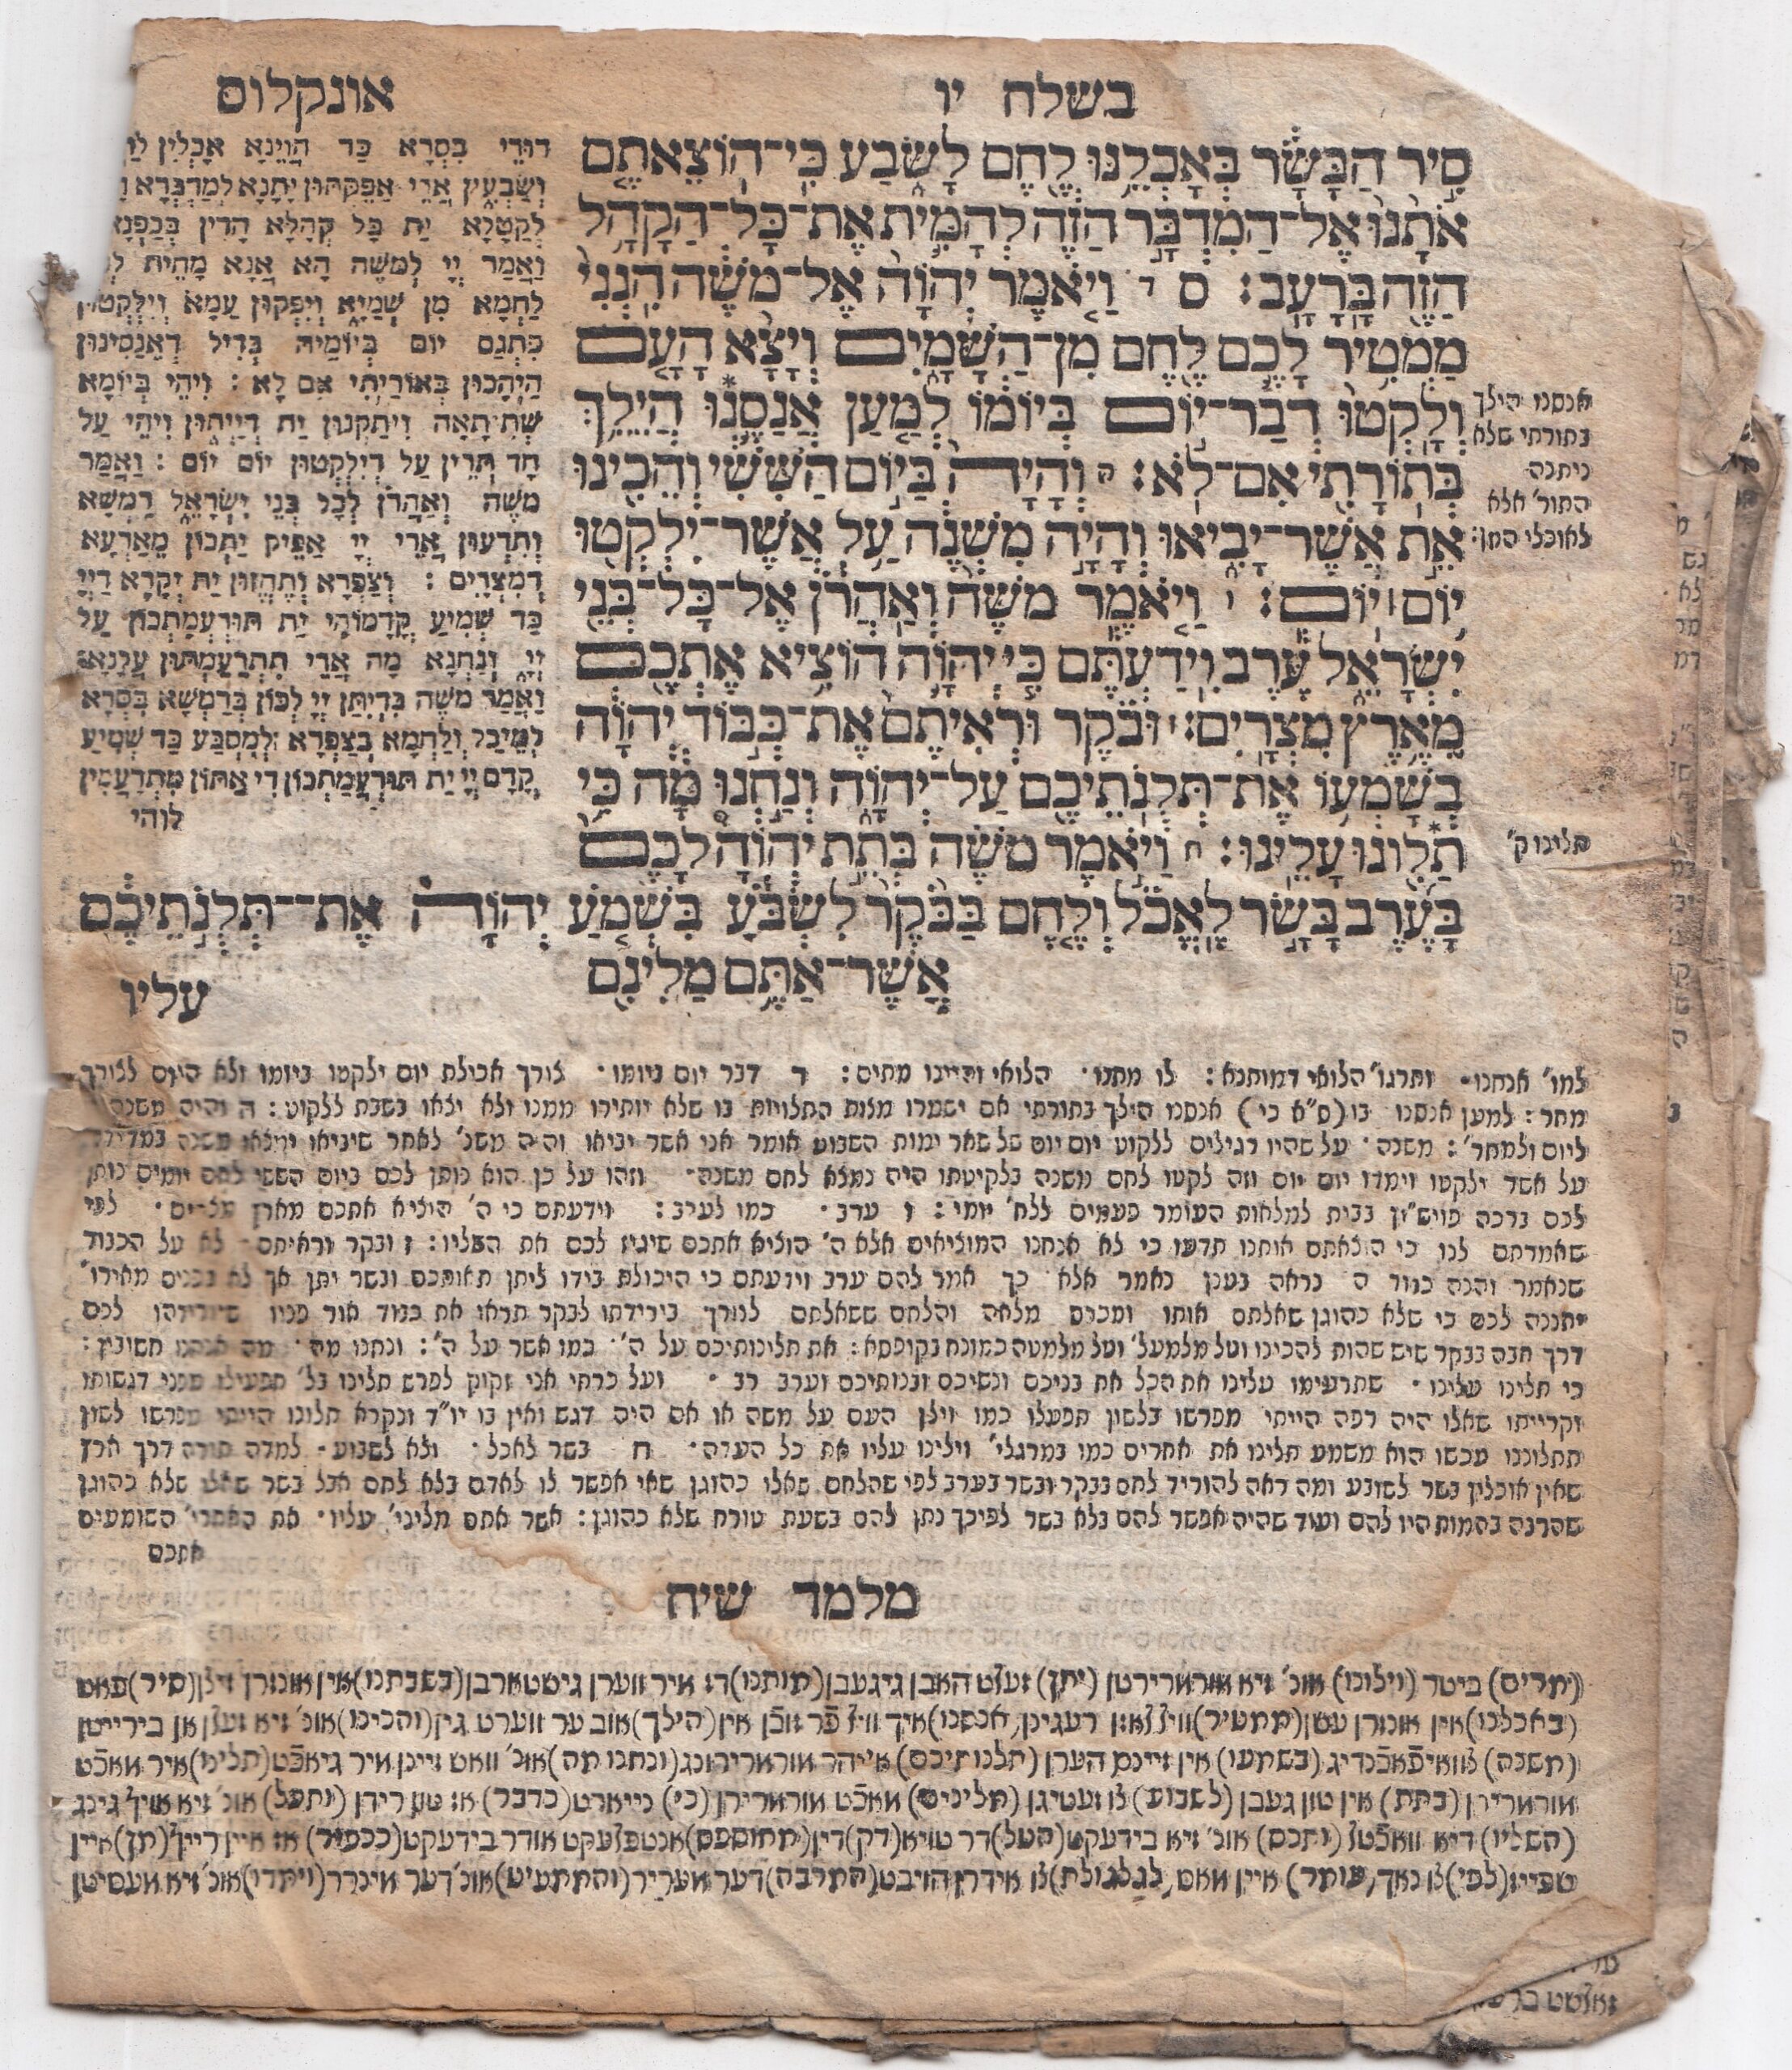 בשלח יו
אונקלוס
סִיר הַבָּשָׂר בְּאָכְלֵנוּ לֶחֶם לָשֹׂבַע כִּי־הוֹצֵאתֶם
אֹתָנוּ אֶל־הַמִּדְבָּר הַזֶּה לְהָמִית אֶת־כָּל־הַקָּהָל
הַזֶּה בָּרָעָב׃ ס וַיֹּאמֶר יְהוָֹה אֶל־מֹשֶׁה הִנְנִי
מַמְטִיר לָכֶם לֶחֶם מִן־הַשָּׁמָיִם וְיָצָא הָעָם
וְלָקְטוּ דְבַר־יוֹם בְּיוֹמוֹ לְמַעַן אֲנַסֶּנּוּ הֲיֵלֵךְ
בְּתוֹרָתִי אִם־לֹא׃ ה וְהָיָה בַּיּוֹם הַשִּׁשִּׁי וְהֵכִינוּ
אֵת אֲשֶׁר־יָבִיאוּ וְהָיָה מִשְׁנֶה עַל אֲשֶׁר־יִלְקְטוּ
יוֹם יוֹם׃ ו וַיֹּאמֶר מֹשֶׁה וְאַהֲרֹן אֶל־כָּל־בְּנֵי
יִשְׂרָאֵל עֶרֶב וִידַעְתֶּם כִּי יְהוָֹה הוֹצִיא אֶתְכֶם
מֵאֶרֶץ מִצְרָיִם׃ וּבֹקֶר וּרְאִיתֶם אֶת־כְּבוֹד יְהוָֹה
בְּשָׁמְעוֹ אֶת־תְּלֻנֹּתֵיכֶם עַל־יְהוָֹה וְנַחְנוּ מָה כִּי
תַלִּונוּ עָלֵינוּ׃ ח וַיֹּאמֶר מֹשֶׁה בְּתֵת יְהוָֹה לָכֶם
בָּעֶרֶב בָּשָׂר לֶאֱכֹל וְלֶחֶם בַּבֹּקֶר לִשְׂבֹּעַ בִּשְׁמֹעַ יְהוָֹה אֶת־תְּלֻנֹּתֵיכֶם
אֲשֶׁר־אַתֶּם מַלִּינִם
עליו
אנסנו הילך
בתורתי שלא
ניתנה
התור' אלא
לאוכלי המן:
תלינו ק'
דוּדֵי בִסְרָא כַּד הֲוֵינָא אָכְלִין
וְשַׂבְעִין אֲרֵי אַפֵּקְתּוּן יָתָנָא לְמַדְבְּרָא
לְקַטָּלָא יַת כָּל קְהָלָא הָדֵין בְּכַפְנָא
וַאֲמַר יְיָ לְמֹשֶׁה הָא אֲנָא מָחֵית
לַחְמָא מִן שְׁמַיָּא וְיִפְקוּן עַמָּא וְיִלְקְטוּן
פִּתְגַם יוֹם בְּיוֹמֵיהּ בְּדִיל דַאֲנַסִּינוּן
הַיְהָכוּן בְּאוֹרַיְתִי אִם לָא : וִיהֵי בְּיוֹמָא
שְׁתִיתָאָה וִיתַקְנוּן יַת דְיַיְתוּן וִיהֵי עַל
חַד תְּרֵין עַל דְיִלְקְטוּן יוֹם יוֹם : וַאֲמַר
מֹשֶׁה וְאַהֲרֹן לְכָל בְּנֵי יִשְׂרָאֵל רַמְשָׁא
וְתִדְּעוּן אֲרֵי יְיָ אַפֵּיק יַתְכוֹן מֵאַרְעָא
דְמִצְרָיִם : וְצַפְרָא וְתֶחֱזוּן יַת יְקָרָא דַיְיָ
כַּד שְׁמִיעַ קֳדָמוֹהִי יַת תּוּרְעֲמַתְכוֹן עַל
יְיָ וְנַחְנָא מָה אֲרֵי תִתְרַעֲמוּן עֲלָנָא
וַאֲמַר מֹשֶׁה בִּדְיִתֵּן יְיָ לְכוֹן בְּרַמְשָׁא בִּסְרָא
לְמֵיכַל וְלַחְמָא בְצַפְרָא לְמִסְבַּע כַּד שְׁמִיעַ
קֳדָם יְיָ יַת תּוּרְעֲמַתְכוֹן דִּי אַתּוּן מִתְרַעֲמִין
לוהי
למו' אנחנו· ותרגו' הלואי דמותנא: לו מתנו· הלואי והיינו מתים: ד דבר יום ביומו· צורך אכילת יום ילקטו ביומו ולא היום לצורך
מחר: למען אנסנו בו (ס"א כי) אנסנו הילך בתורתי אם ישמרו מצות התלויות בו שלא יותירו ממנו ולא יצאו בשבת ללקוט: ה והיה משנה
ליום ולמחר': משנה· על שהיו רגילים ללקוט יום יום של שאר ימות השבוע אומר אני אשר יביאו והיה משנ' לאחר שיביאו ימצאו משנה במדידה
על אשר ילקטו וימדו יום יום וזה לקטו לחם משנה בלקיטתו היה נמצא לחם משנה· וזהו על כן הוא נותן לכם ביום הששי לחם יומים נותן
לכם ברכה פויש"ון בבית למלאות העומר פעמים ללח' יומי: ו ערב· כמו לערב: וידעתם כי ה' הוציא אתכם מארץ מצרים· לפי
שאמרתם לנו כי הוצאתם אותנו תדעו כי לא אנחנו המוציאים אלא ה' הוציא אתכם שיגיז לכם את השליו: ז ובקר וראיתם· לא על הכבוד
שנאמר והנה כבוד ה נראה בענן נאמר אלא כך אמר להם ערב וידעתם כי היכולת בידו ליתן תאותכם ובשר יתן אך לא בפנים מאירו'
יתננה לכם כי שלא כהוגן שאלתם אותו ומכרס מלאה והלחם ששאלתם לצורך בירידתו לבקר תראו את כבוד אור פניו שיורידהו לכם
דרך חבה בבקר שיש שהות להכינו וטל מלמעל' וטל מלמטה כמונח בקופסא: את תלינותיכם על ה'· כמו אשר על ה': ונחנו מה· מה אנחנו חשובין:
כי תלינו עלינו· שתרעימו עלינו את הכל את בניכם ונשיכם ובנותיכם וערב רב· ועל כרחי אני זקוק לפרש תלינו בל' תפעילו מפני דגשותו
וקרייתו שאלו היה רפה הייתי מפרשו בלשון תפעלו כמו וילן העם על משה או אם היה דגש ואין בו יו"ד ונקרא תלונו הייתי מפרשו לשון
תתלוננו עכשו הוא משמע תלינו את אחרים כמו במרגלי' וילינו עליו את כל העדה· ח בשר לאכל· ולא לשבוע· למדה תורה דרך ארץ
שאין אוכלין בשר לשובע ומה ראה להוריד לחם בבקר ובשר בערב לפי שהלחם שאלו כהוגן שאי אפשר לו לאדם בלא לחם אבל בשר שאלו שלא כהוגן
שהרבה בהמות היו להם ועוד שהיה אפשר להם בלא בשר לפיכך נתן להם בשעת טורח שלא כהוגן: אשר אתם מליני' עליו· את האחרי' השומעים
אתכם
מלמד שיח
(ימרים) ביטר (וילונו) אונ' זיא מורמירטן (יתן) זעלט האבן גיגעבן (מותנו) דז איר ווערן גישטארבן (בשבתנו) אין אונזרן זיצן (סיר) פאט
(באכלנו) אין אונזרן עסן (ממטיר) וויל לאזן רעגינן (אנסנו) איך וויל פר זוכן אין (הילך) אוב ער ווערט גין (והכינו) אונ' זיא זעלן אן בירייטן
(משנה) צוואיפאכנדיג (בשמעו) אין זיינם הערן (תלנותיכם) אייהר מורמירונג (ונחנו מה) אונ' וואש זיינן מיר גיאכט (תלינו) איר מאכט
מורמירין (בתת) אין טון געבן (לשבוע) צו זעטיגן (מלינים) מאכט מורמירין (כי) נייארט (כדבר) אז טע רידן (ותעל) אונ' זיא אויף גינג
(השליו) דיא וואכטל (ותכס) אונ' זיא בידעקט (הטל) דר טויא (דק) דין (מחוספס) אנטפלעקט אודר בידעקט (ככפור) אז איין רייף (מן) איין
שפייז (לפי) צו נאך (עומר) איין מאס (לגלגולת) צו אידרן הויבט (המרבה) דער מערר (והממעיט) אונ' דער מינדר (וימדו) אונ' זיא מעסטן